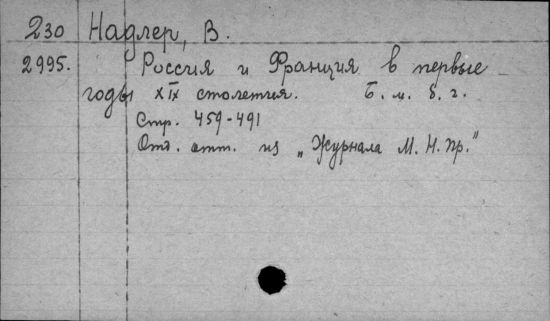 230 Надлер, В.
2995. Россия и Франция в первые
годы XIX столетия. Б. м. б. г.
Стр. 459-491
Отд. отт. из „Журнала М. Н. Пр."